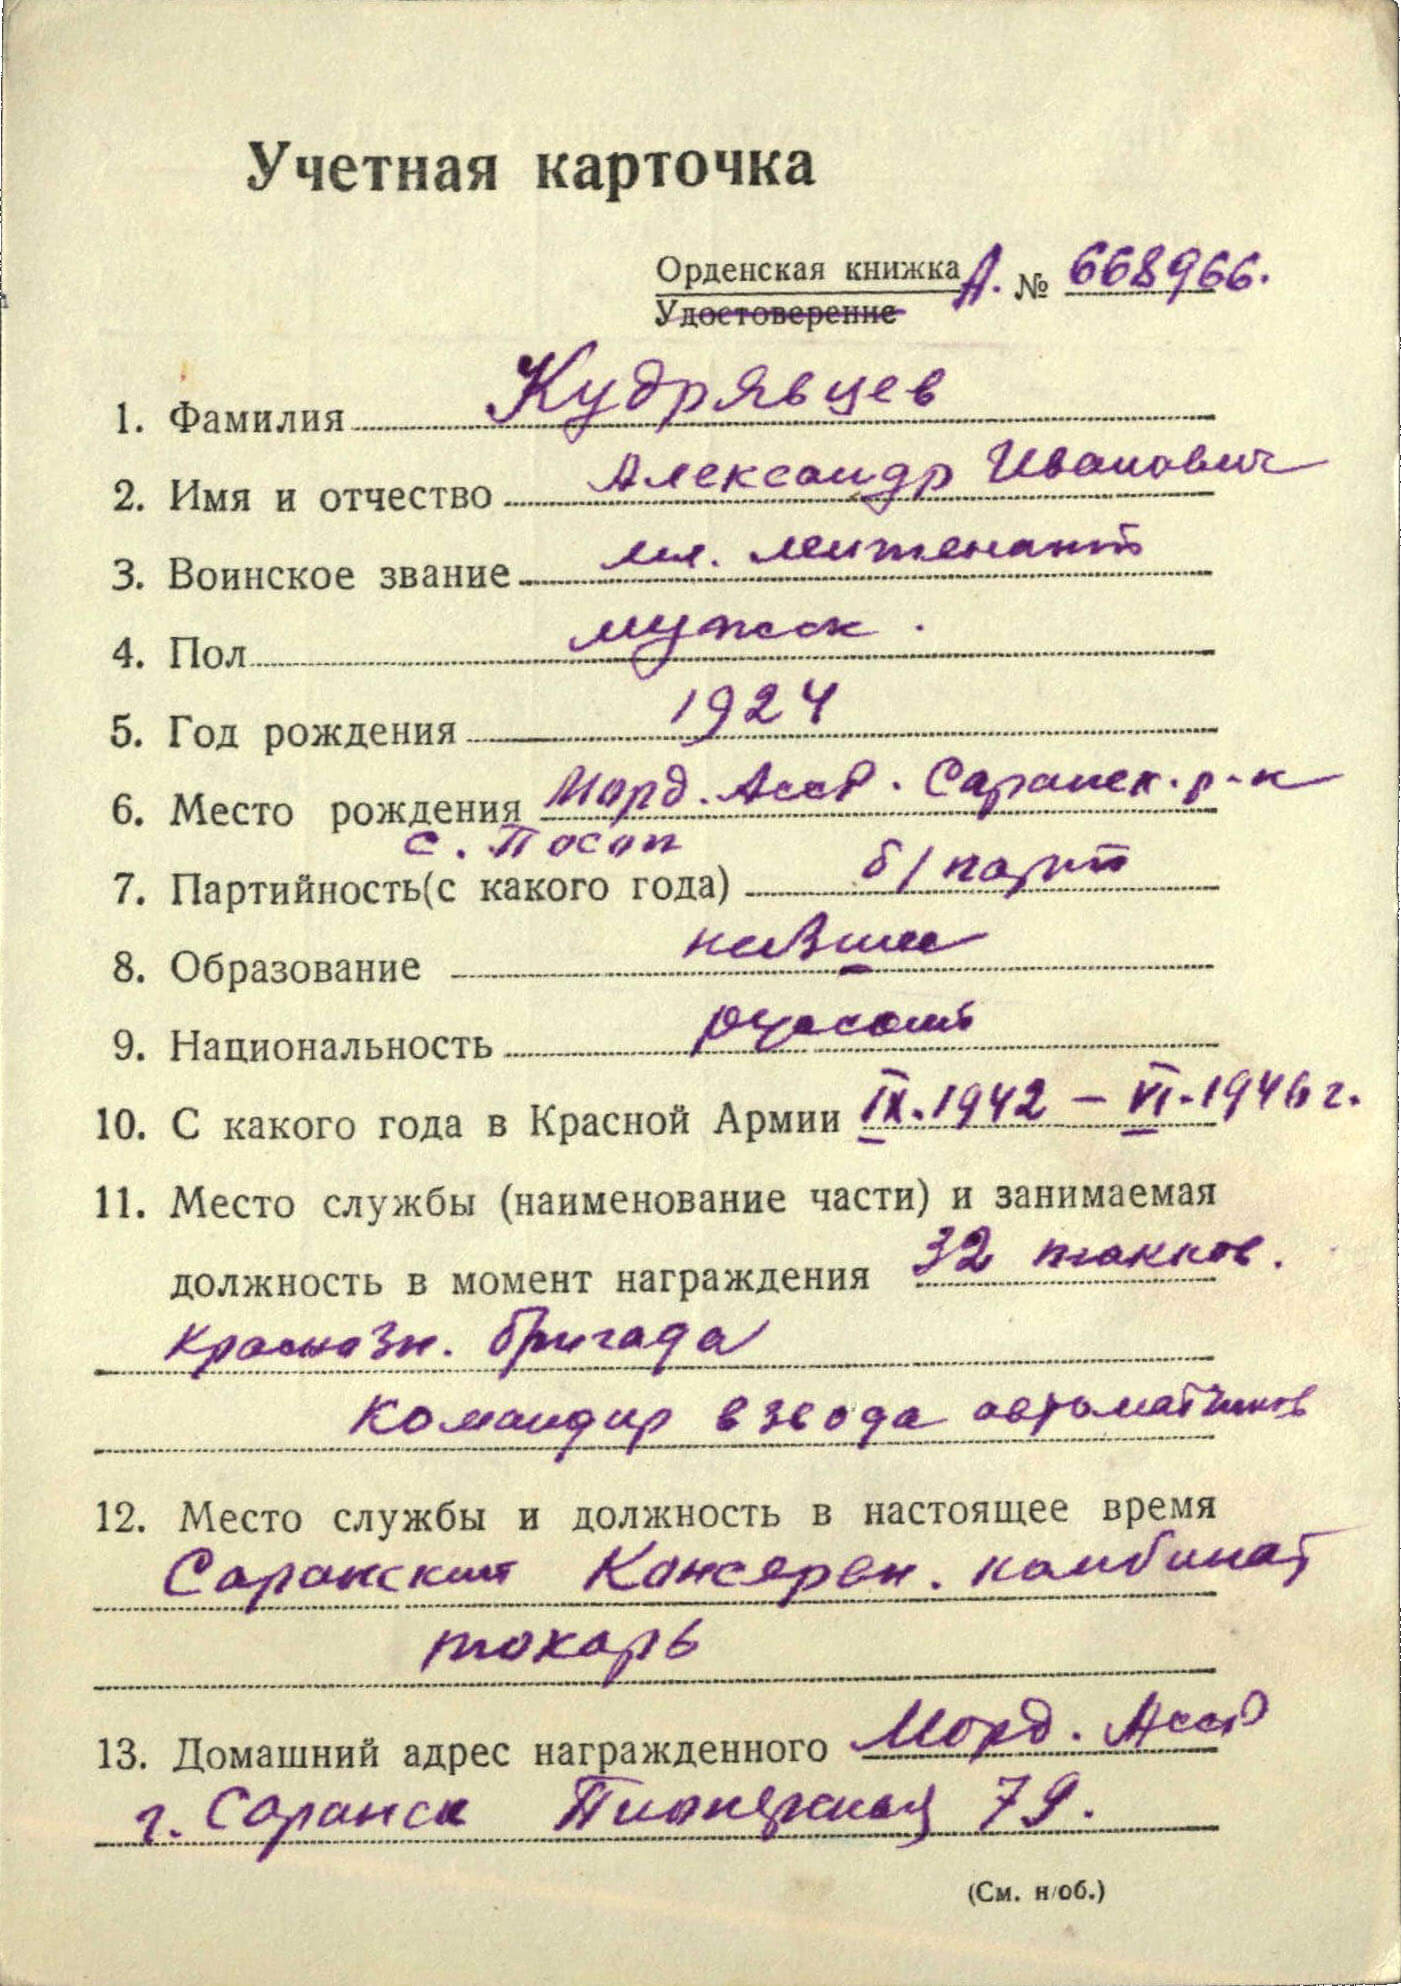 Учетная карточка
Орденская книжка А. № 668966.
Удостоверение
1. Фамилия Кудрявцев
2. Имя и отчество Александр Иванович
3. Воинское звание мл. лейтенант
4. Пол мужск.
5. Год рождения 1924
6. Место рождения Морд. Асср. Саранск. р-н
с. Посоп
7. Партийность(с какого года) б/парт
8. Образование низшее
9. Национальность русский
10. С какого года в Красной Армии IX.1942 – VI.1946 г.
11. Место службы (наименование части) и занимаемая
должность в момент награждения 32 танков.
Краснозн. бригада
командир взвода автоматчиков
12. Место службы и должность в настоящее время
Саранский Консервн. комбинат
токарь
13. Домашний адрес награжденного Морд. Асср
г. Саранск Пионерская 79.
(См. н/об.)